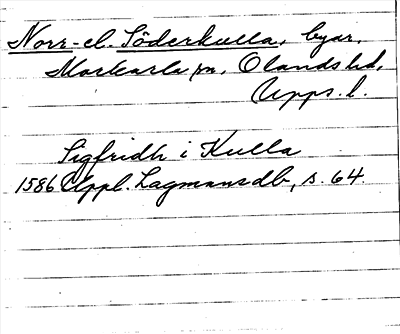 Norr- el. Söderkulla, byar,
Morkarla sn, Olands hd,
Upps. l.
Sigfridh i Kulla
1586 Uppl. Lagmansdb, s. 64.